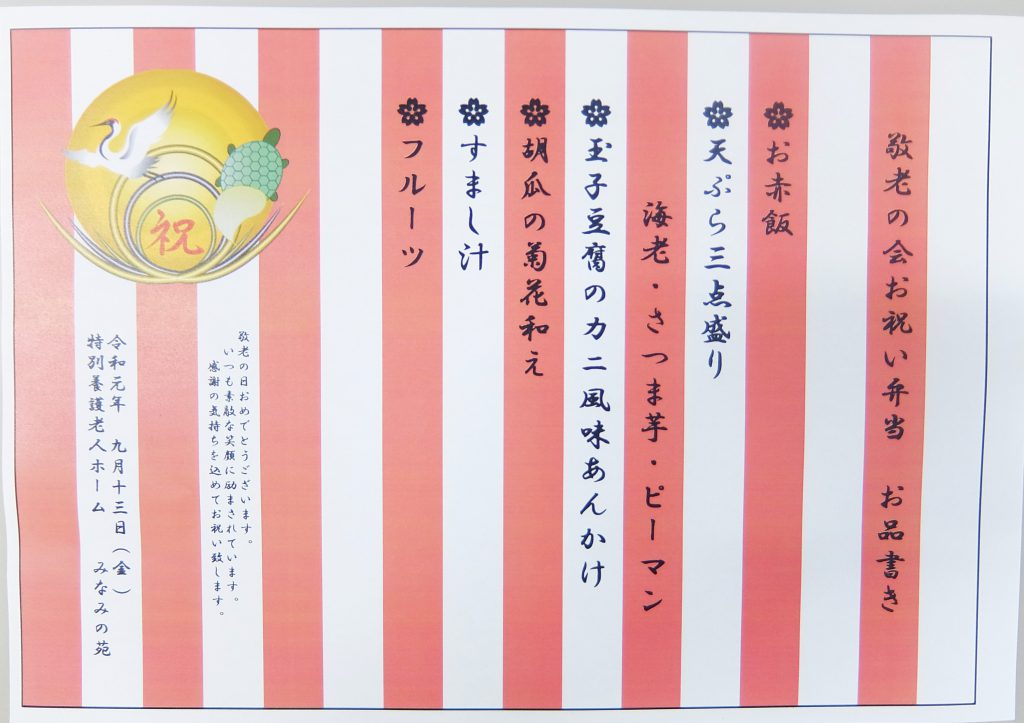 敬老の会お祝い弁当　お品書き
お赤飯
天ぷら三点盛り
海老・さつま芋・ピーマン
玉子豆腐のカニ風味あんかけ
胡瓜の菊花和え
すまし汁
フルーツ
祝
敬老の日おめでとうございます。
いつも素敵な笑顔に励まされています。
感謝の気持ちを込めてお祝い致します。
令和元年　九月十三日（金）
特別養護老人ホーム　みなみの苑